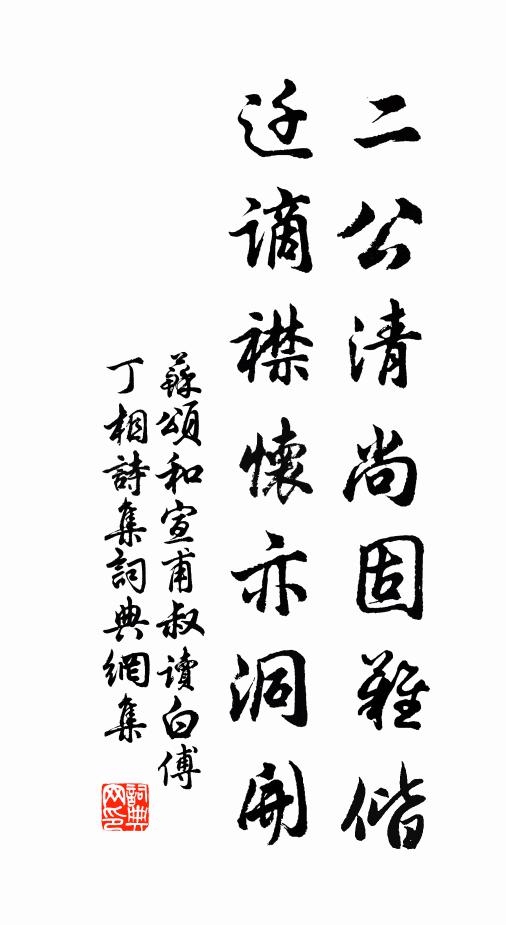 二公清尚固難偕
迁謫襟懷亦洞開
蘇頌和宣甫叔讀白傅
丁相詩集詞典網集
詞典网印